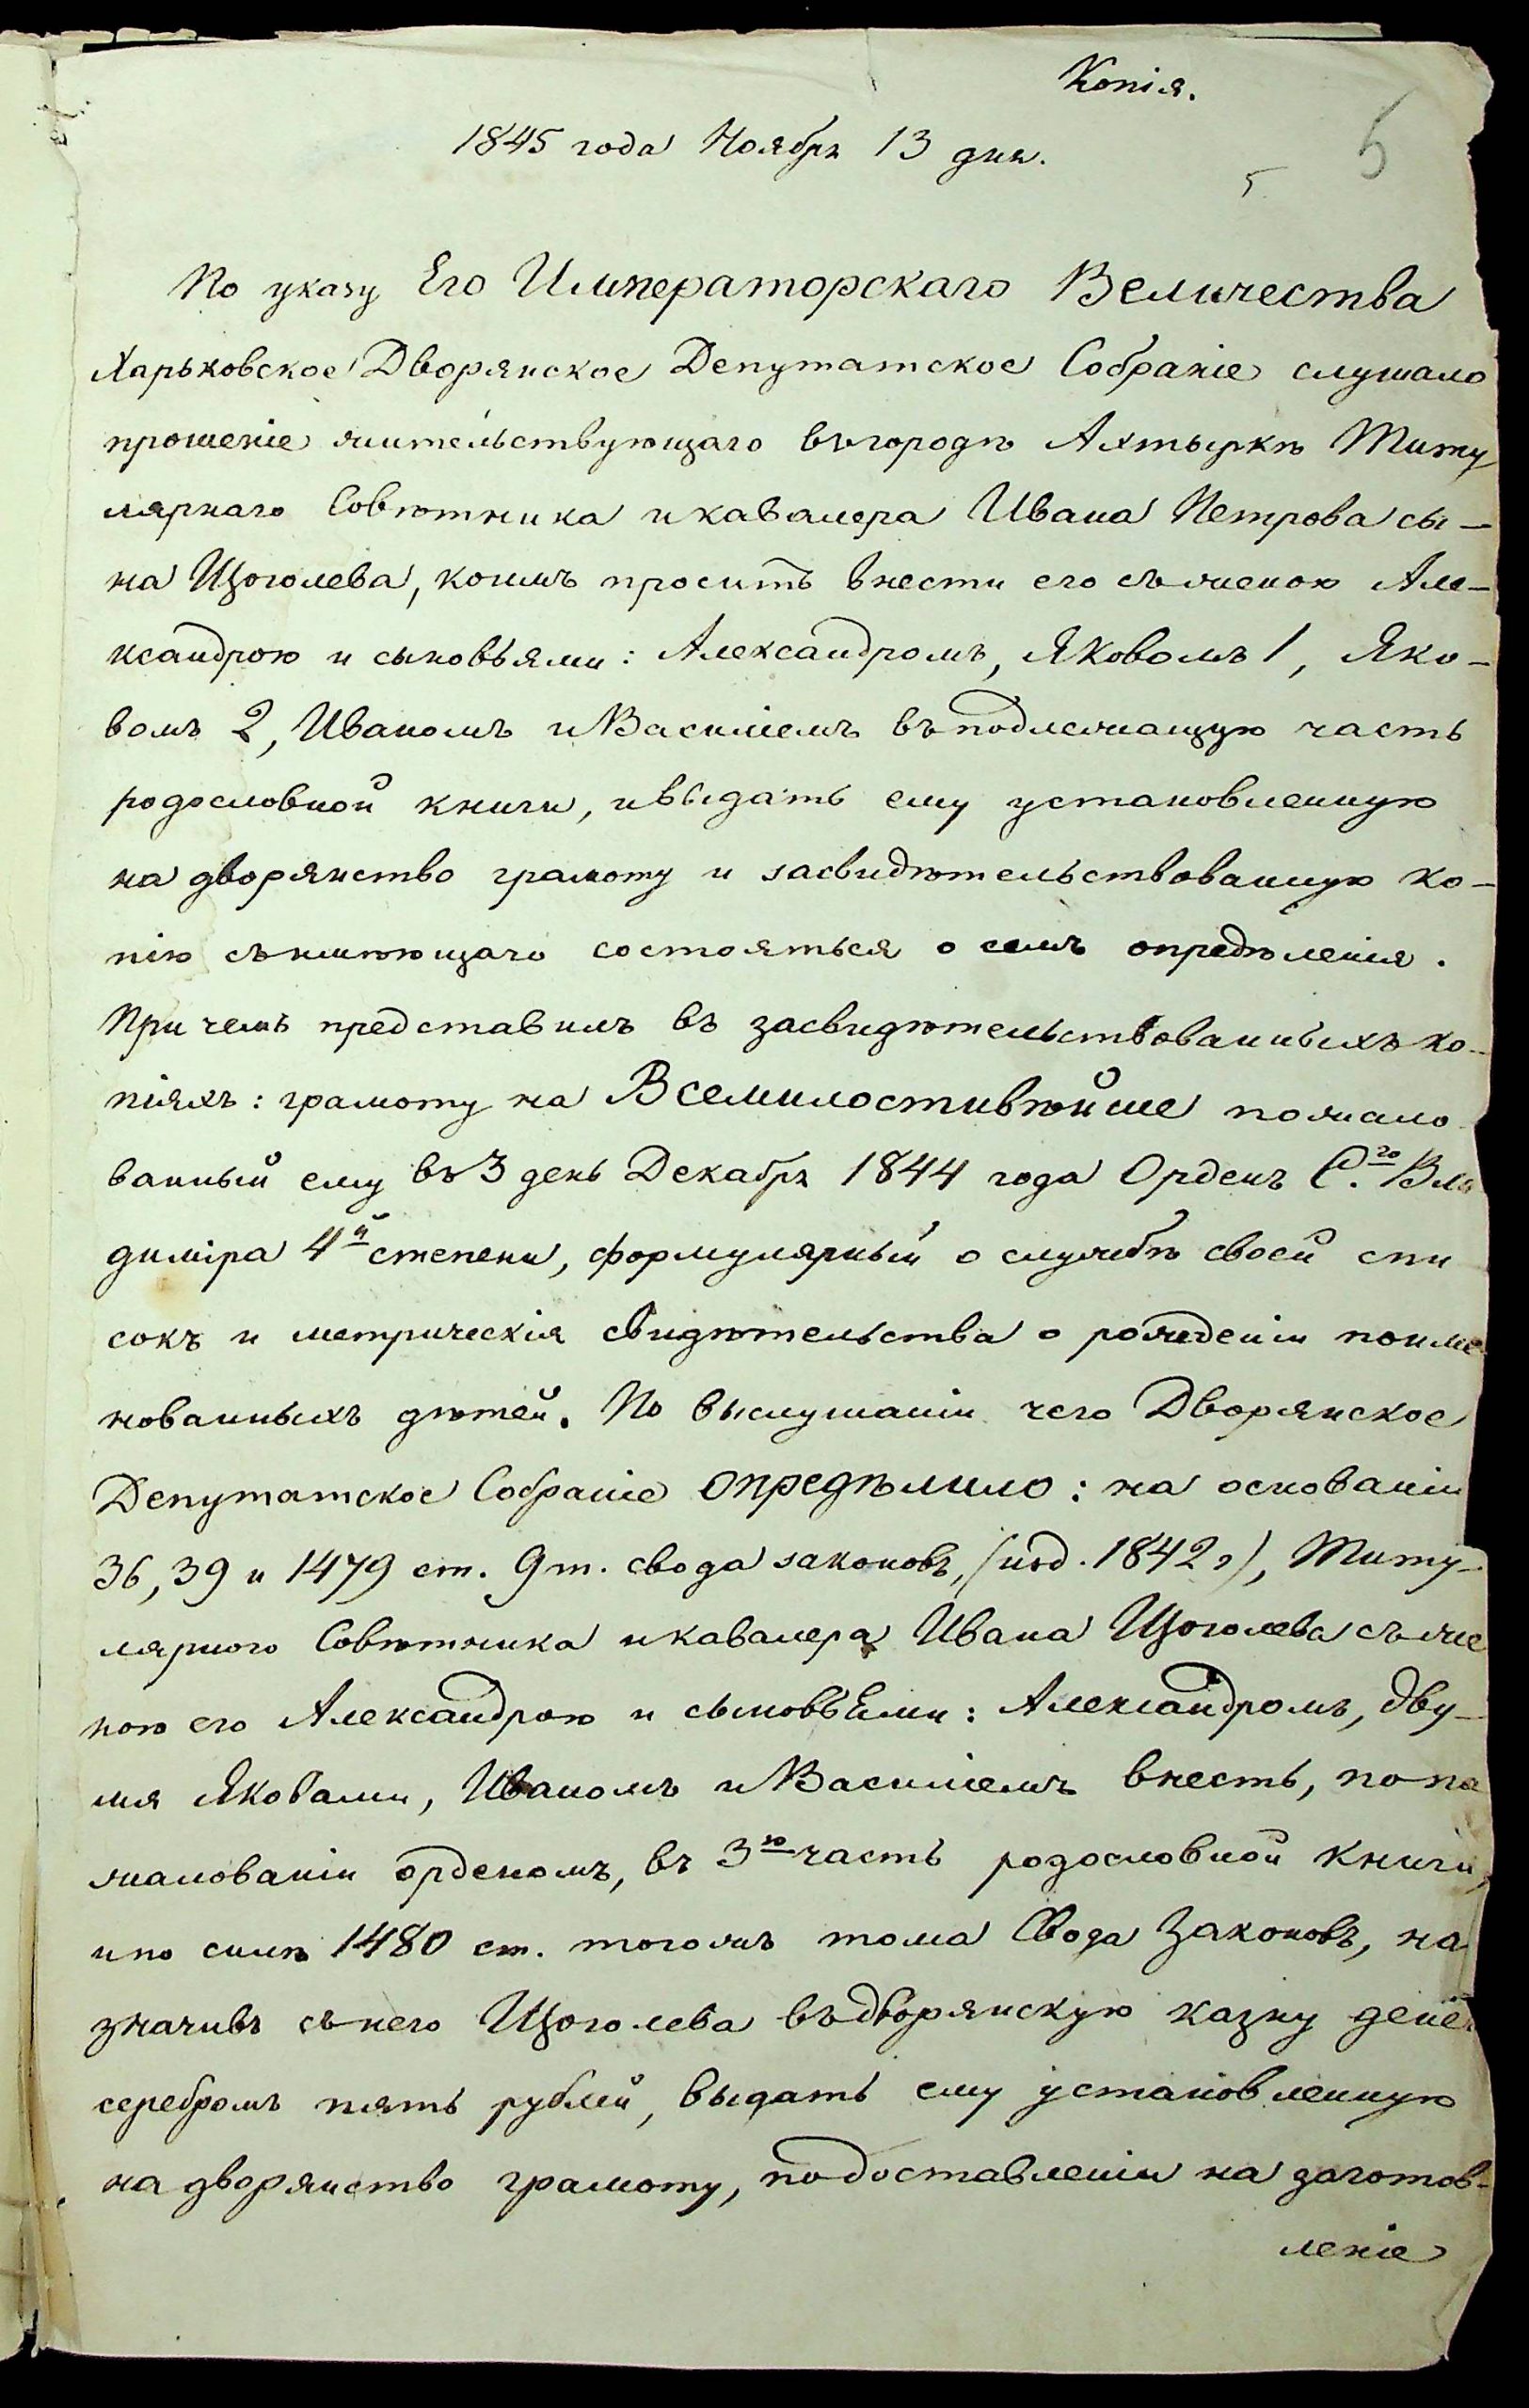 Копія.
5
1845 года Ноября 13 дня.
5
По указу Его Императорскаго Величества
Харьковское Дворянское Депутатское Собраніе слушало
прошеніе жительствующаго въ городѣ Ахтыркѣ Титу
лярнаго Совѣтника и кавалера Ивана Петрова сы-
на Щоголева, коимъ проситъ внести его съ женою Але-
ксандрою и сыновьями: Александромъ, Яковомъ 1, Яко-
вомъ 2, Иваномъ и Василіемъ въ подлежащую часть
родословной книги, и выдать ему установленную
на дворянство грамоту и засвидѣтельствованную ко-
пію съ имѣющаго состояться о семъ опредѣленія.
При чемъ представилъ въ засвидѣтельствованныхъ ко-
піяхъ: грамоту на Всемилостивѣйше пожало
ванный ему въ 3 день Декабря 1844 года Орденъ С.го Вла
диміра 4й степени, формулярный о службѣ своей спи
сокъ и метрическія свидѣтельства о рожденіи поиме
нованныхъ дѣтей. По выслушаніи чего Дворянское
Депутатское Собраніе опредѣлило: на основаніи
36, 39 и 1479 ст. 9 т. свода законовъ, (изд. 1842 г), Титу-
лярного Совѣтника и кавалера Ивана Щоголева съ же
ною его Александрою и сыновьями: Александромъ, дву-
мя Яковами, Иваномъ и Василіемъ внесть, по по
жалованіи орденомъ, въ 3ю часть родословной книги,
и по силѣ 1480 ст. тогожъ тома Свода Законовъ, на
значивъ съ него Щоголева въ дворянскую казну денегъ
серебромъ пять рублей, выдать ему установленную
на дворянство грамоту, по доставленіи на заготов-
леніе